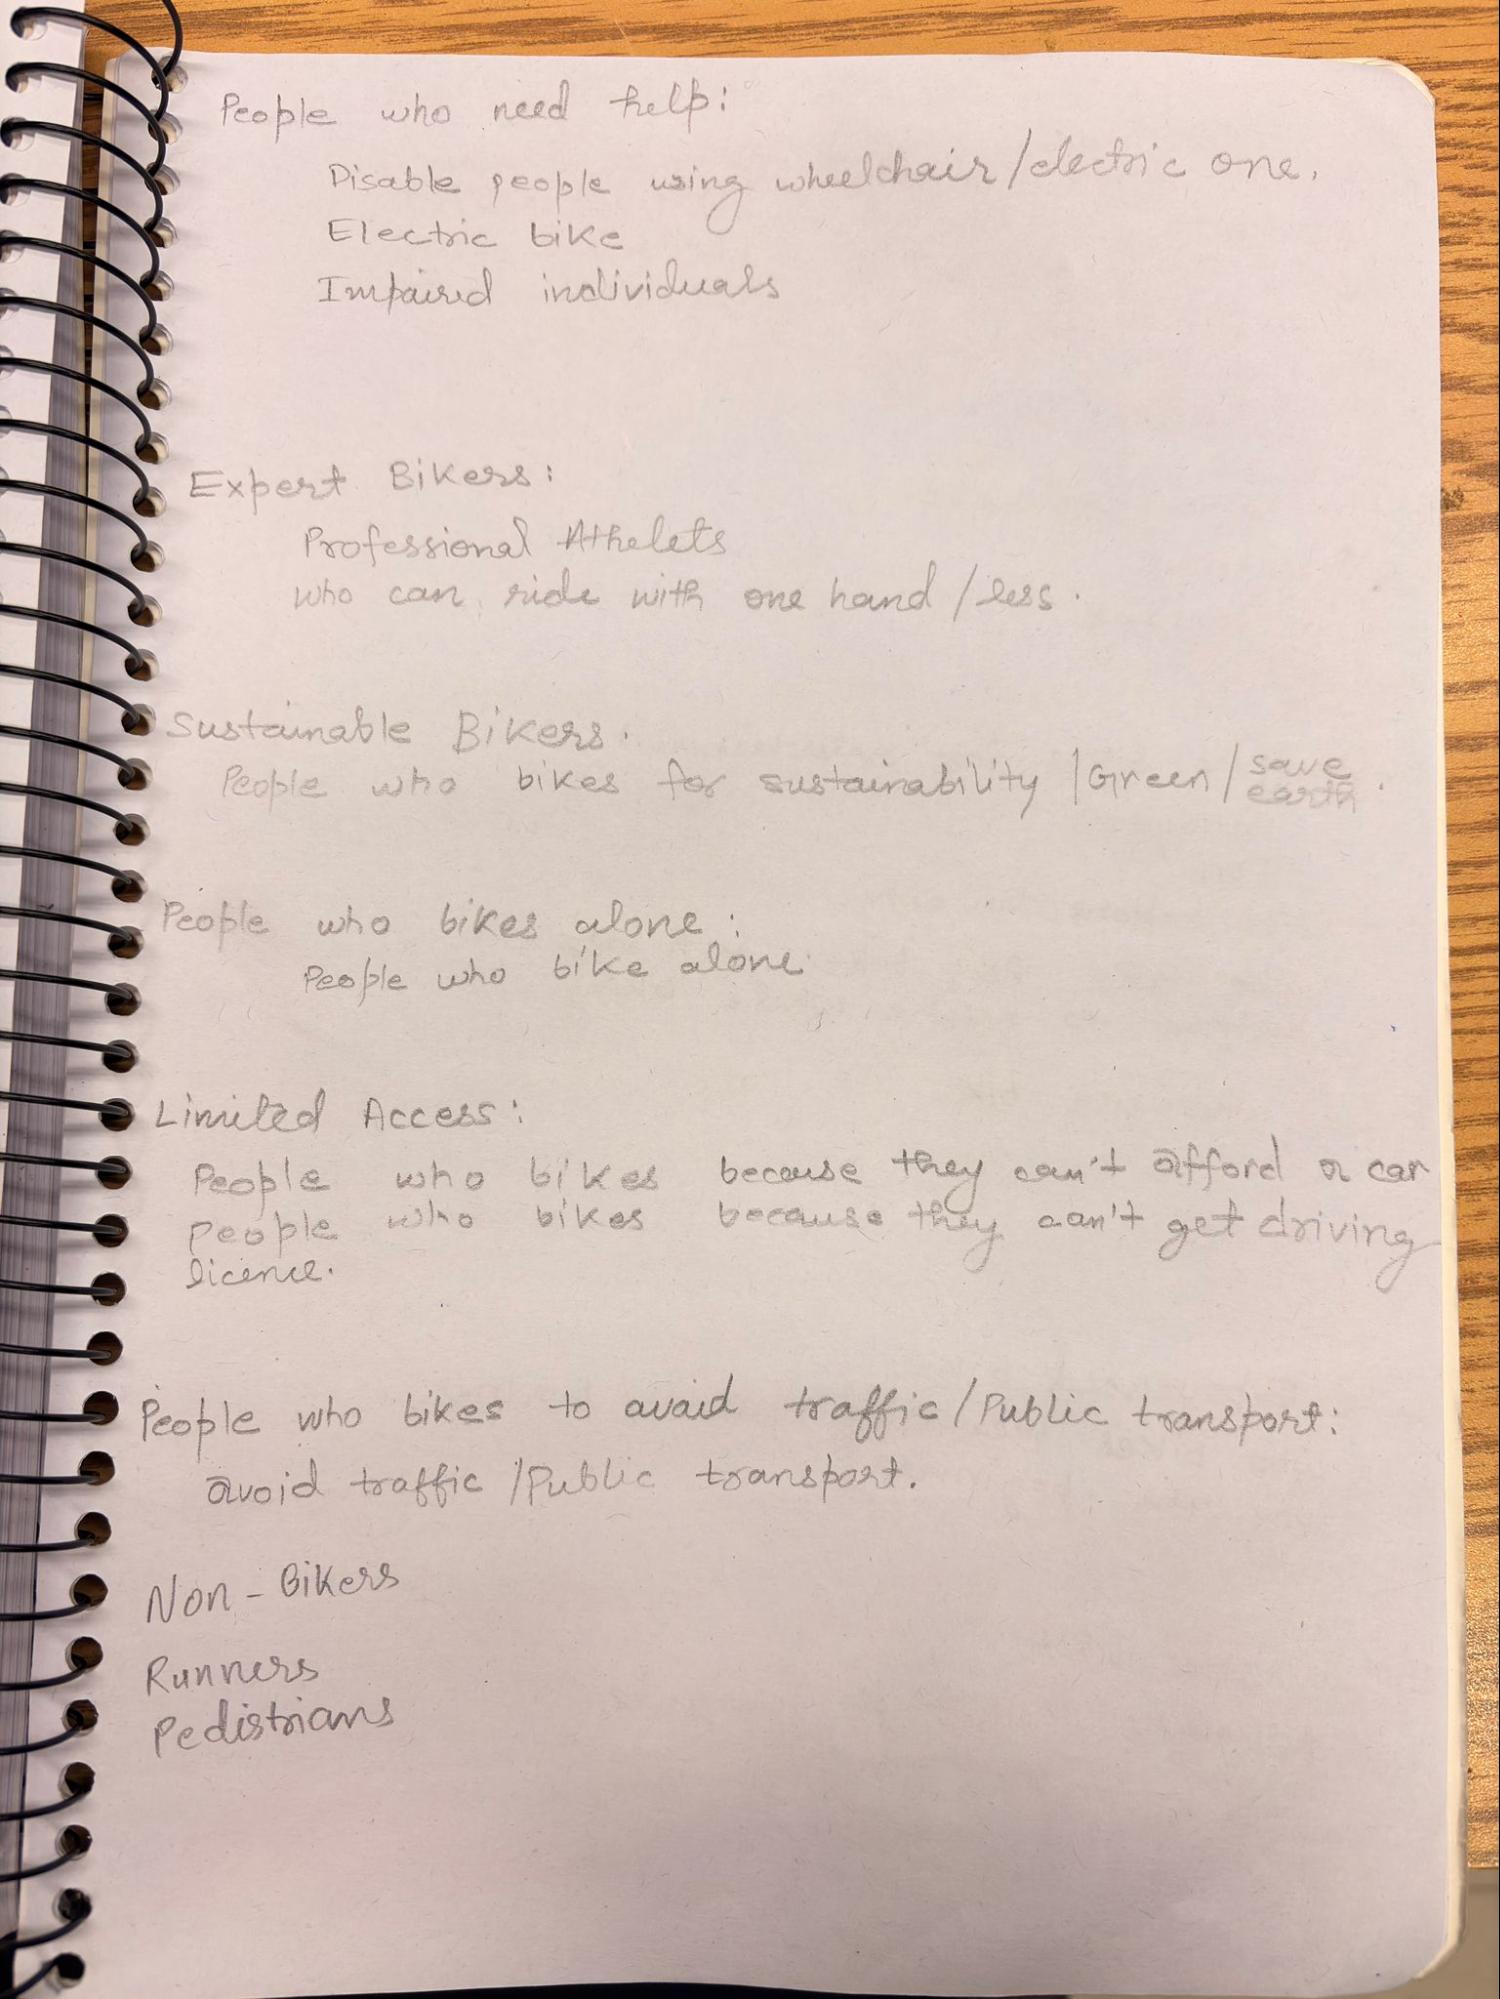 People who need help:
Disable people using wheelchair/electric one.
Electric bike
Impaired individuals
Expert Bikers:
Professional Athelets
who can ride with one hand/less.
Sustainable Bikers.
People who bikes for sustainability/Green/save earth.
People who bikes alone:
People who bike alone.
Limited Access:
People who bikes because they can't afford a car
People who bikes because they can't get driving
licence.
People who bikes to avoid traffic/Public transport:
avoid traffic/Public transport.
Non-Bikers
Runners
Pedistrians